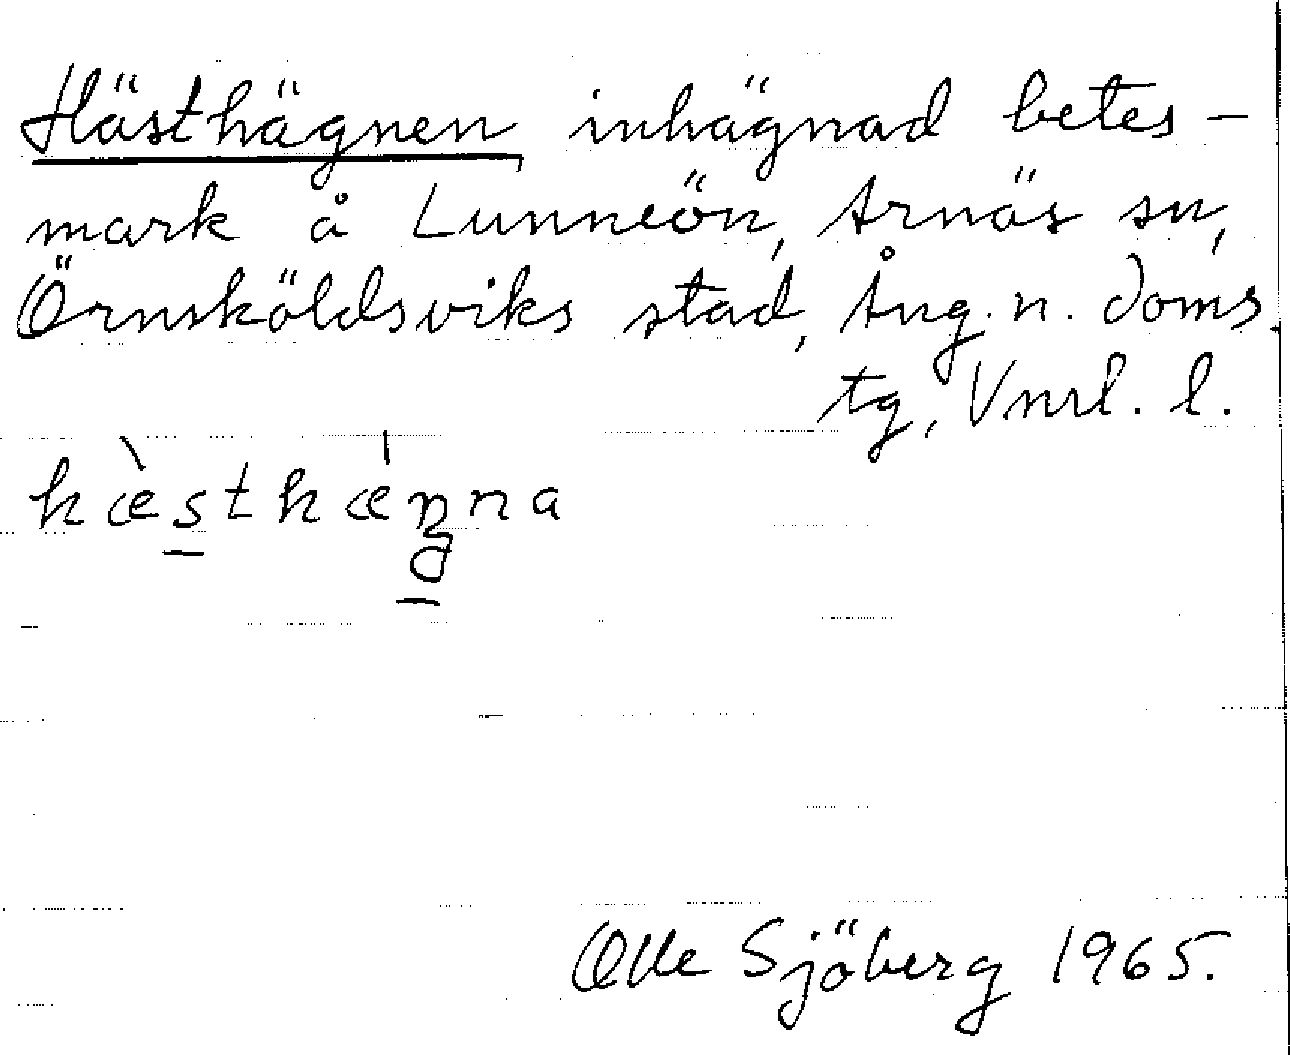 Hästhägnen, inhägnad betes-
mark å Lunneön, Arnäs sn,
Örnsköldsviks stad, Ång. n. doms.
tg, Vnrl. l.
hæ̀sthæ̍ŋna
Olle Sjöberg 1965.